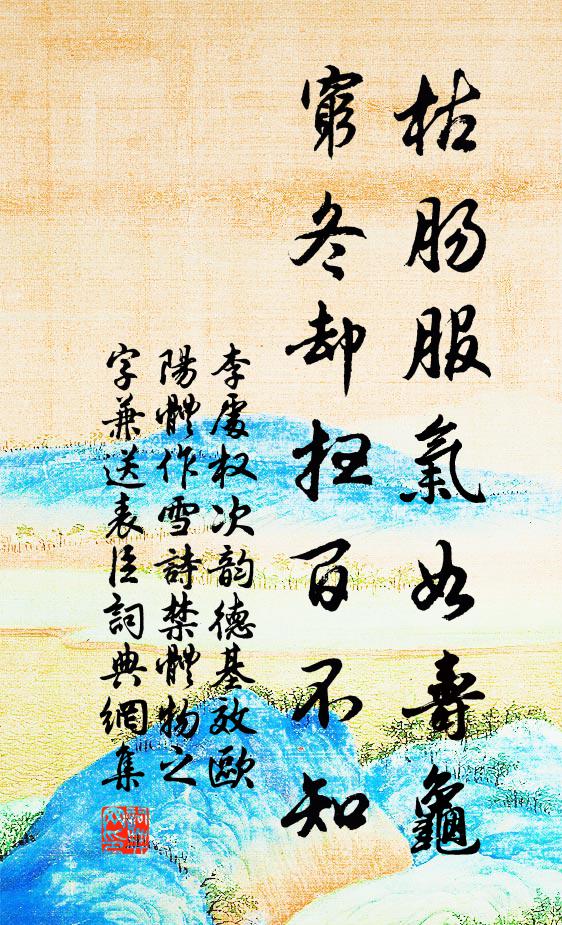 枯腸服氣如壽龜
窮冬却扫百不知
李處权次韵德基效歐
陽體作雪詩禁體物之
字兼送表臣詞典網集